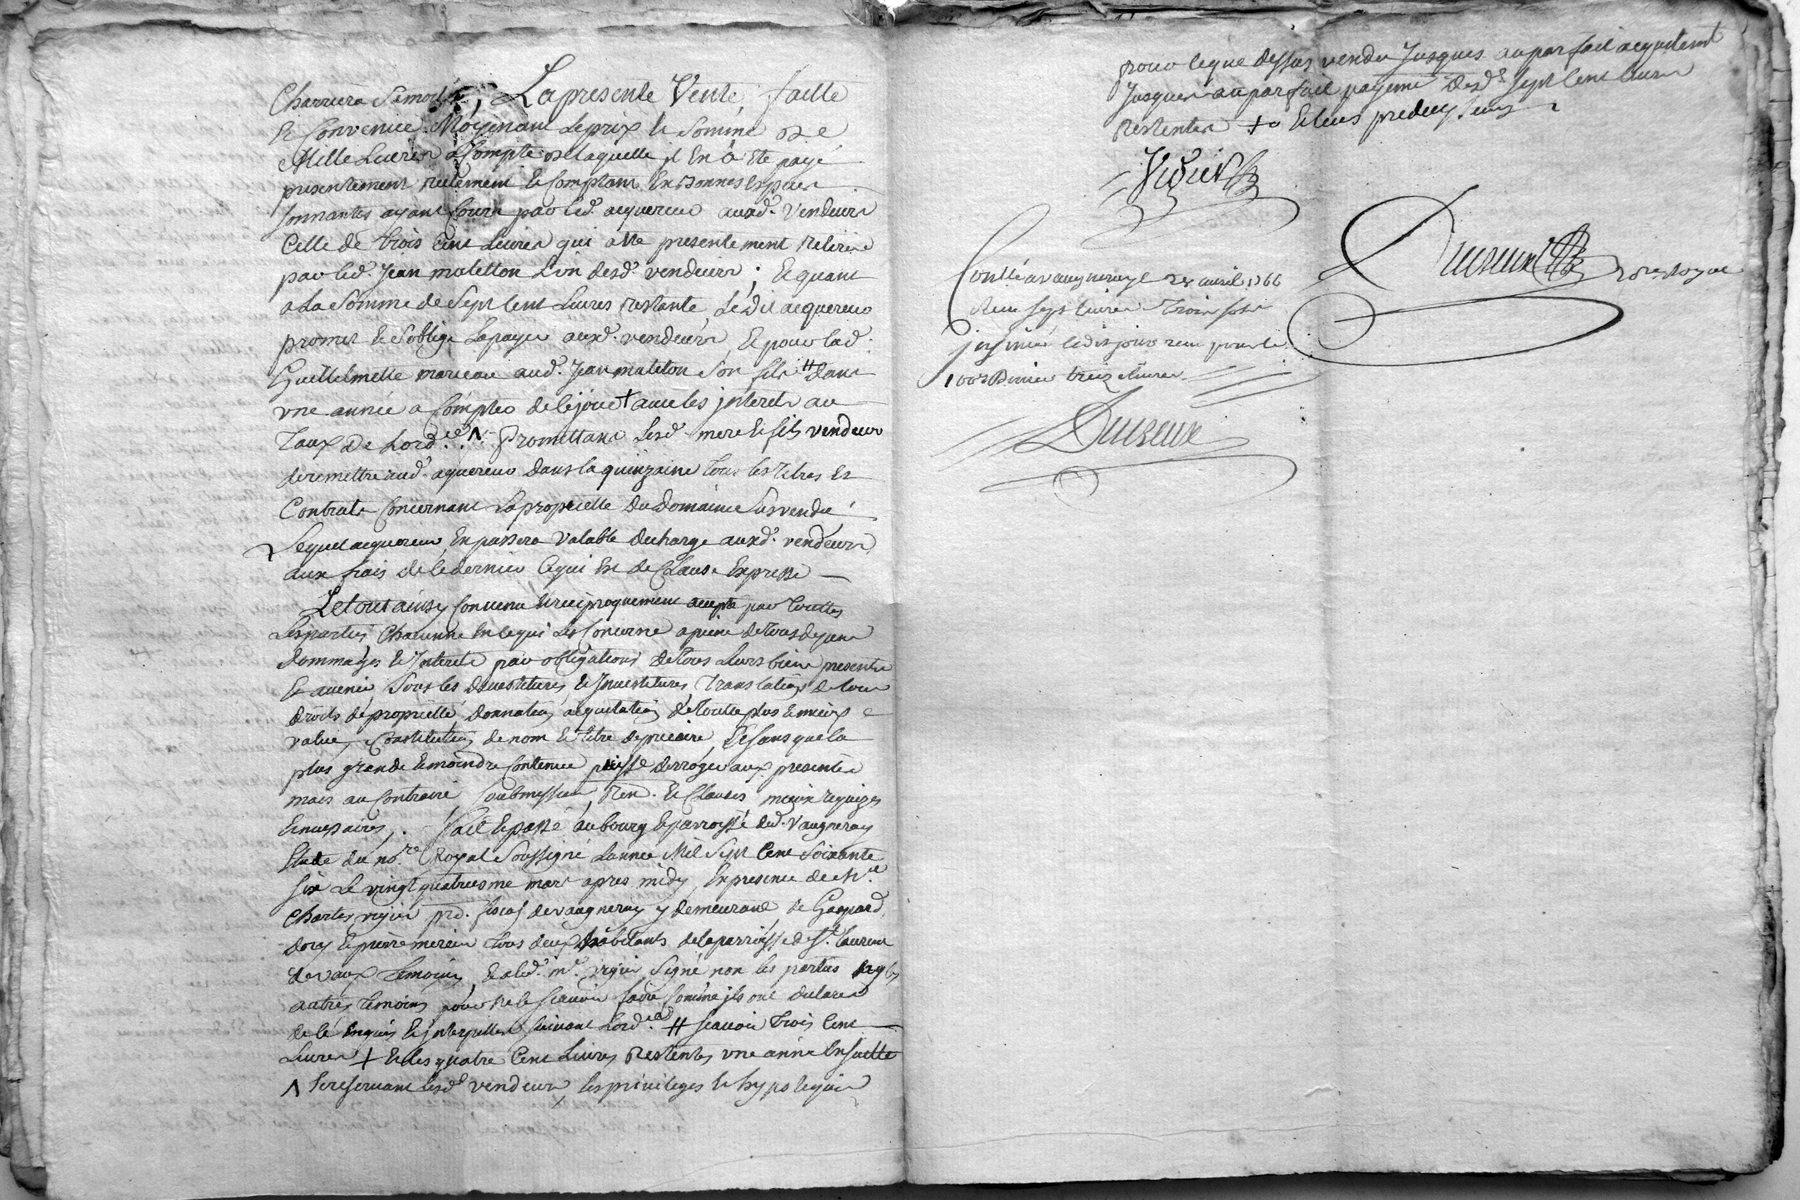 La presente Vente, faitte
et Convenue Moyenant le prix et Somme de
Mille Livres a Compte de laquelle il En a Ete payé
presentement reelement et Comptant En Bonnes Especes
sonnantes ayant Cours par led. acquereur auxd. Vendeurs
Celle de trois Cent Livres qui a ete presentement retirée
par led. Jean maletton L'un desd. vendeurs ; Et quant
a La Somme de Sept Cent Livres restante, Le Dit acquereur
promet et S'oblige La payer auxd. vendeurs, Et pour lad.
audit Jean maleton Son fils # Dans
une année a Compter de Ce jour + avec les interets au
Taux De Lord.ce ^ promettant Lesd. mere et fils vendeurs
de remettre aud. aquereur Dans la quinzaine tous les titres et
Contrats Concernant La propriette Du Domaine Susvendu
Lequel acquereur En passera Valable decharge auxd. vendeurs
aux frais de Ce dernier Ce qui Est de Clause Expresse
Le tout ainsy Convenu et reciproquement accepté par touttes
Les parties Chacunne En ce qui Les Concerne a peine de tous depens
Dommages et Interets par obligations de tous Leurs biens presents
Et avenir Sous les devestitures et Investitures, translation de tous
droits de propriette, donnation, de toutte plus et mieux
value, Constitution de nom et titre de precaire, Et sans que la
plus grande et moindre Contenue puisse derroger aux presentes
mais au Contraire, Soubmission, Ren. et Clauses mieux requises
et necessaires, . Fait et passé au bourg et parroisse dud. Vaugneray
Etude du no.re Royal Soussigné L'année Mil Sept Cent Soixante
Six Le vingt quatriesme mars apres midy, En presence de
Charles vigier pro. fiscal de vaugneray y demeurant de Gaspard
et pierre mercier tous deux habitants de la parroisse de St. Laurent
de vaux temoins, m.e vigier Signé non les parties
autres temoins pour ne le scavoir faire Comme ils ont declaré
de ce Enquis et interpellés suivant Lord.ce # scavoir trois Cent
Livres + Et les quatre Cent Livres Restentes une année Ensuitte
^ Se reservant lesd. vendeurs les privileges et hypoteques
pour ce que dessus vendu Jusques au parfait acquitement
Jusques au parfait payement desd. sept Cent Livres
restentes +
Vigier
Duseux
Contlé a vaugneray le 28 avril 1766
Reçu sept livres Trois sols
insinué ledit jour reçu pour le
100e Denier treize livres
Duseux